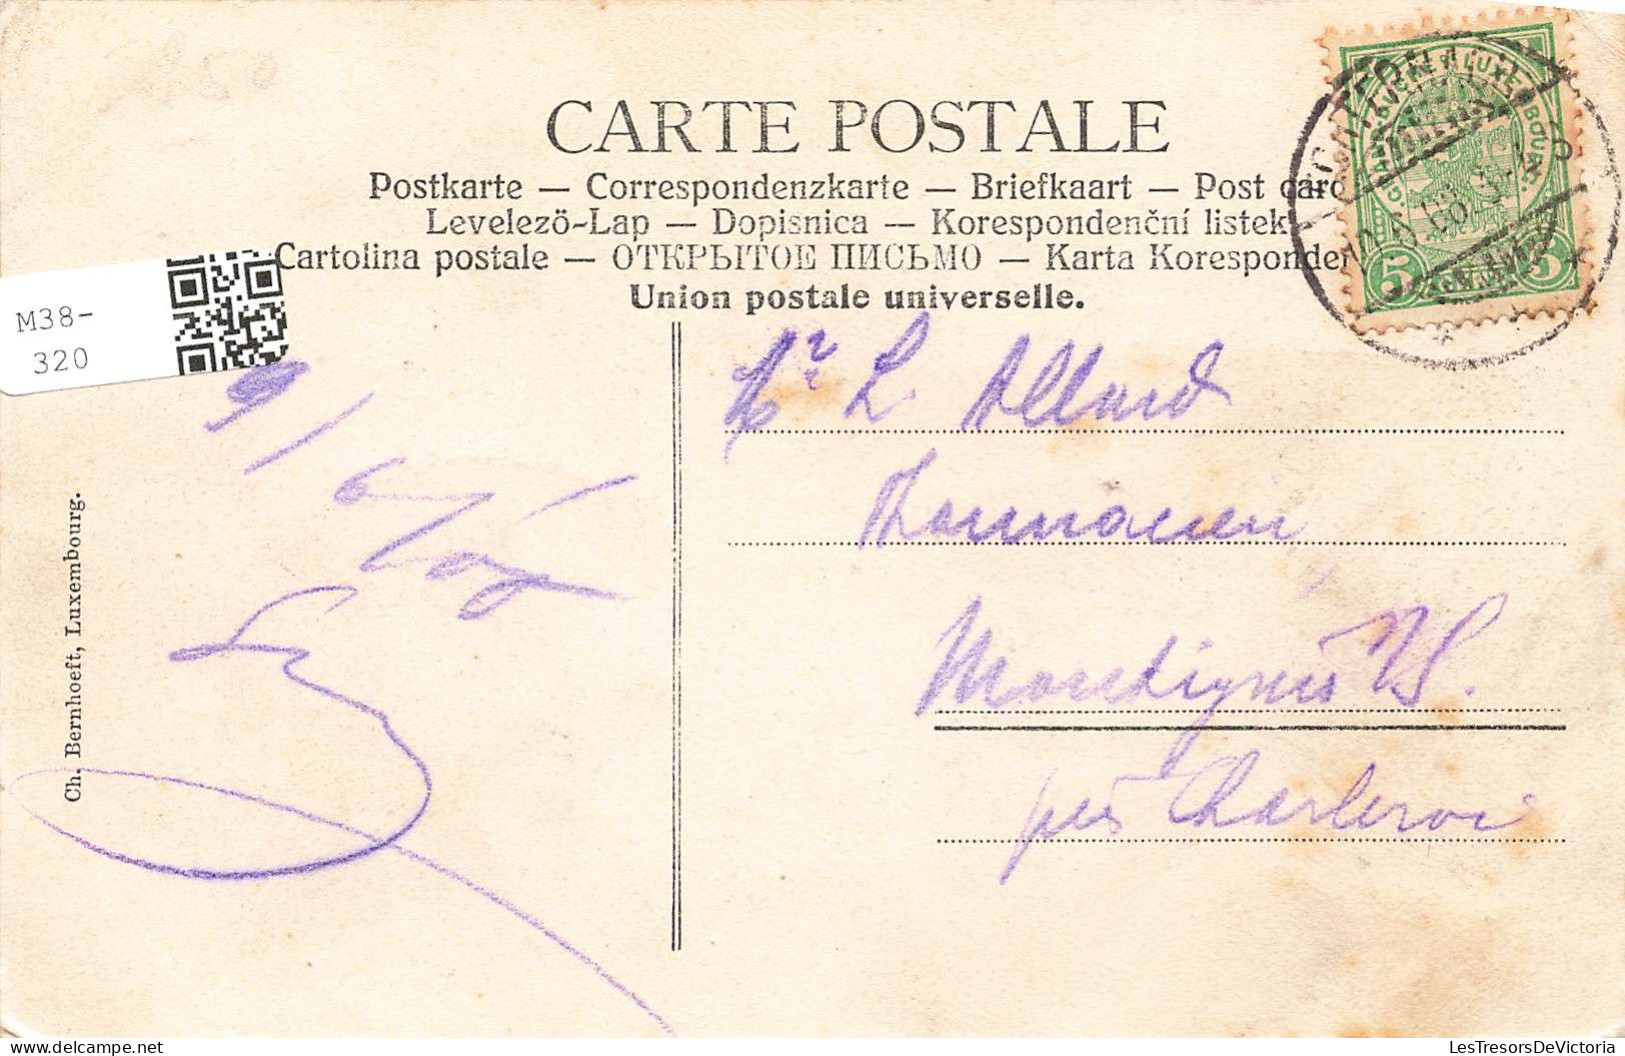 CARTE POSTALE
Postkarte — Correspondenzkarte — Briefkaart — Post card
Levelezö-Lap — Dopisnica — Korespondenční listek
Cartolina postale — ОТКРЫТОЕ ПИСЬМО — Karta Koresponden
Union postale universelle.
M38-
320
GRAND DUCHÉ DE LUXEMBOURG
5 5
9/6/09
Mr L. Allard
Montignies s/S.
près Charleroi
Ch. Bernhoeft, Luxembourg.
LesTresorsDeVictoria